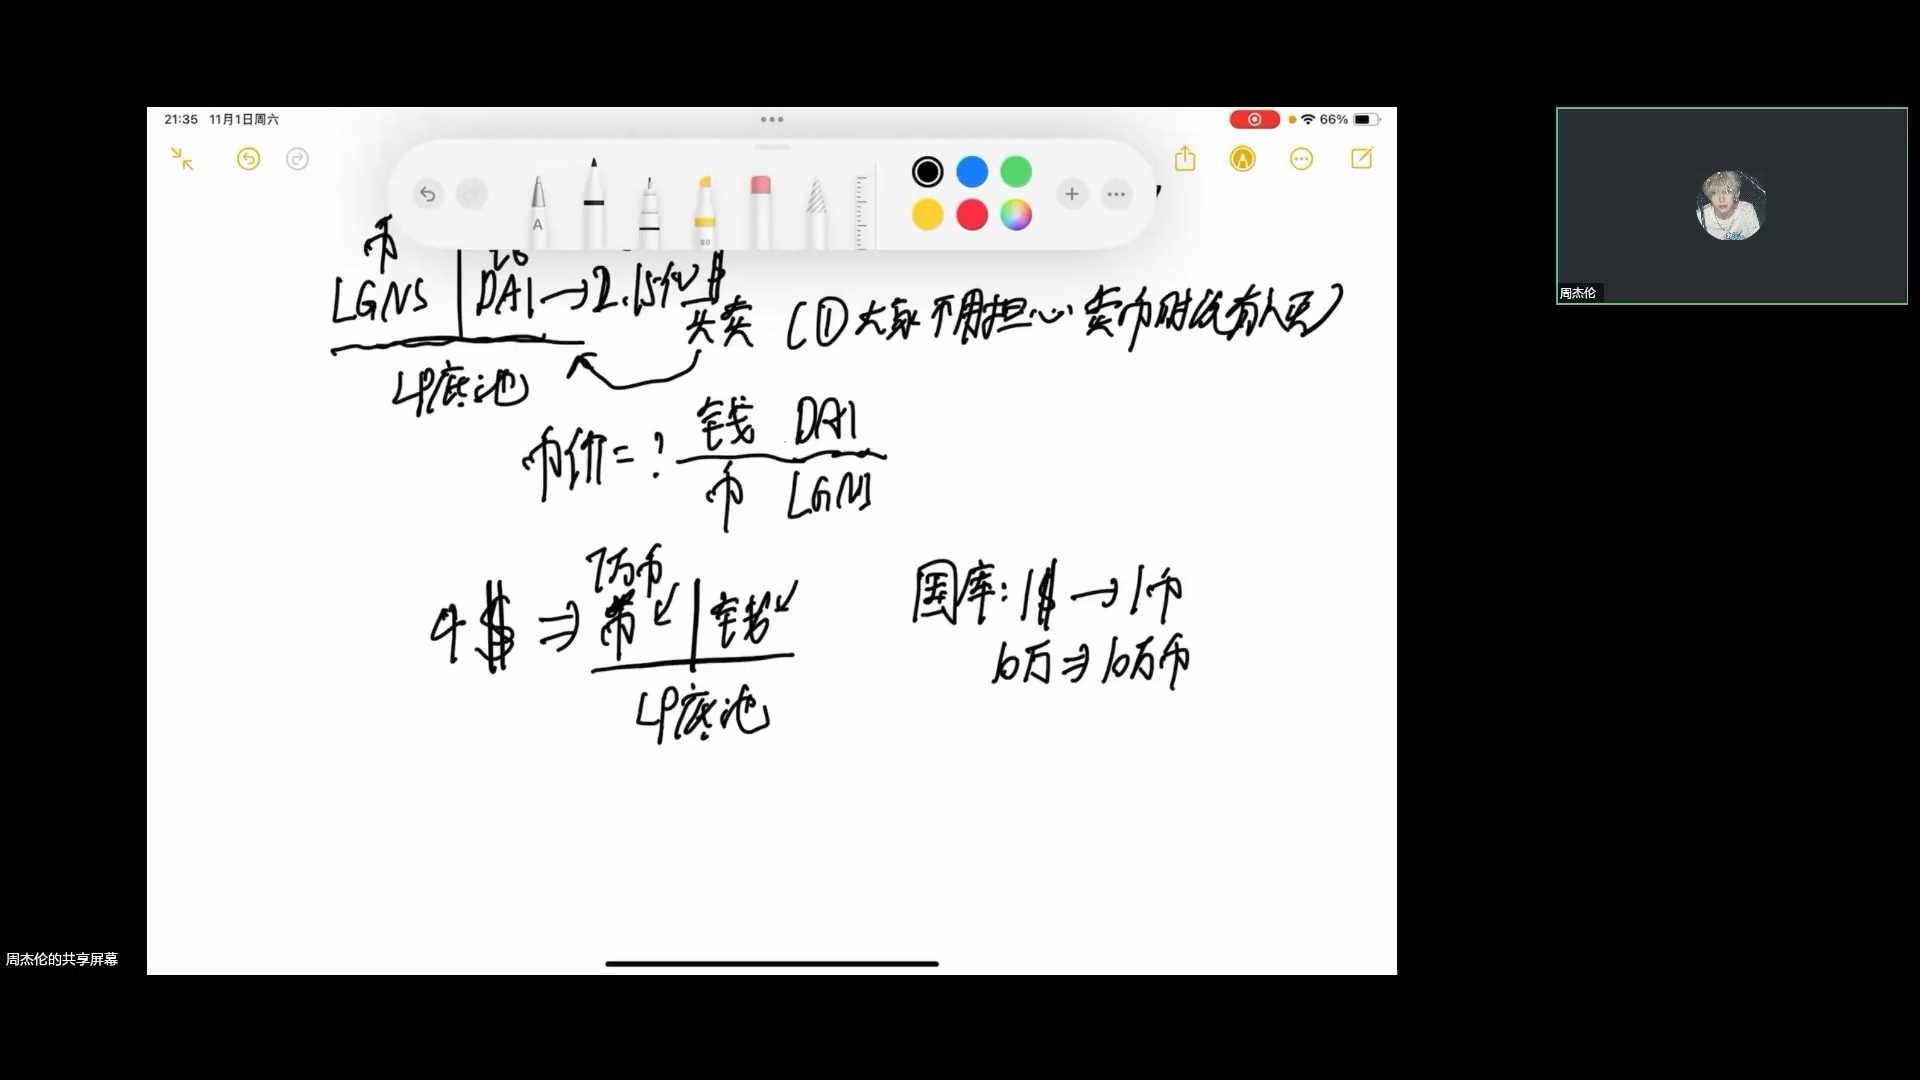 21:35 11月1日周六
66%
A
80
币
LGNS | DAI → 2.15亿$
买卖 (①大家不用担心卖币时没有人买)
LP底池
币价=? 钱 DAI
币 LGNS
7万币
4$ ⇒ 币 | 钱
LP底池
国库: 1$ → 1币
10万 ⇒ 10万币
周杰伦
周杰伦的共享屏幕